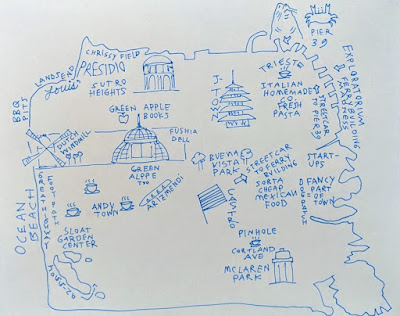 PIER
39
CHRISSY FIELD
PRESIDIO
SUTRO
HEIGHTS
LANDS END
Louis'
BBQ
PITS
DUTCH
WINDMILL
GREEN APPLE
BOOKS
J-TOWN
TRIESTE
ITALIAN
HOMEMADE
FRESH
PASTA
EXPLORATORIUM
FERRY BUILDING
FERRYNESS
STREETCAR
TO PIER 39
FUSHIA
DELL
BUENA
VISTA
PARK
STREETCAR
TO FERRY
BUILDING
START-
UPS
SORTA
CHEAP
MEXICAN
FOOD
DOGPATCH
FANCY
PART
OF
TOWN
GREEN
ALOPPE
TOO
ARIZMENDI
ANDYTOWN
CASTRO
OCEAN
BEACH
GREAT HIGHWAY
FOOTPATH
SLOAT
GARDEN
CENTER
PINHOLE
CORTLAND
AVE
MCLAREN
PARK